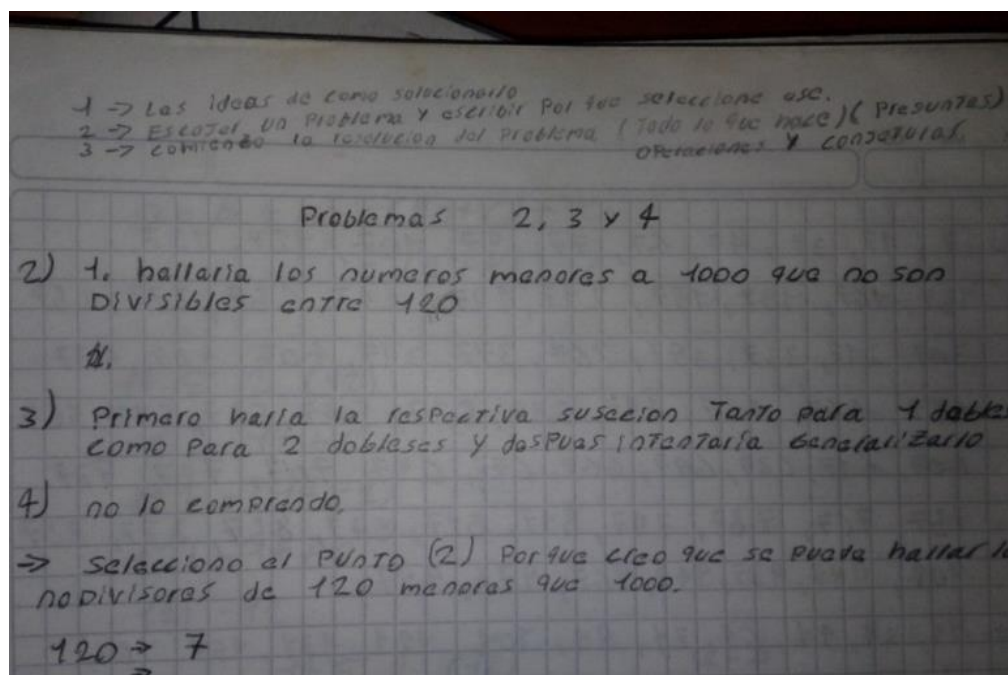 1 → Las ideas de como solucionarlo
2 → Escojer un Problema y escribir Por que seleccione ese.
3 → comienzo la resolucion del Problema (Todo lo que hace) (Preguntas)
operaciones y conjeturas.
Problemas 2, 3 y 4
2) 1. hallaria los numeros menores a 1000 que no son
Divisibles entre 120
3) Primero haria la respectiva suseción Tanto para 1 doble
como para 2 dobleses y despues intentaría Generalizarlo
4) no lo comprendo.
→ selecciono el PUNTO (2) Porque creo que se puede hallar
no Divisores de 120 menores que 1000.
120 → 7
→